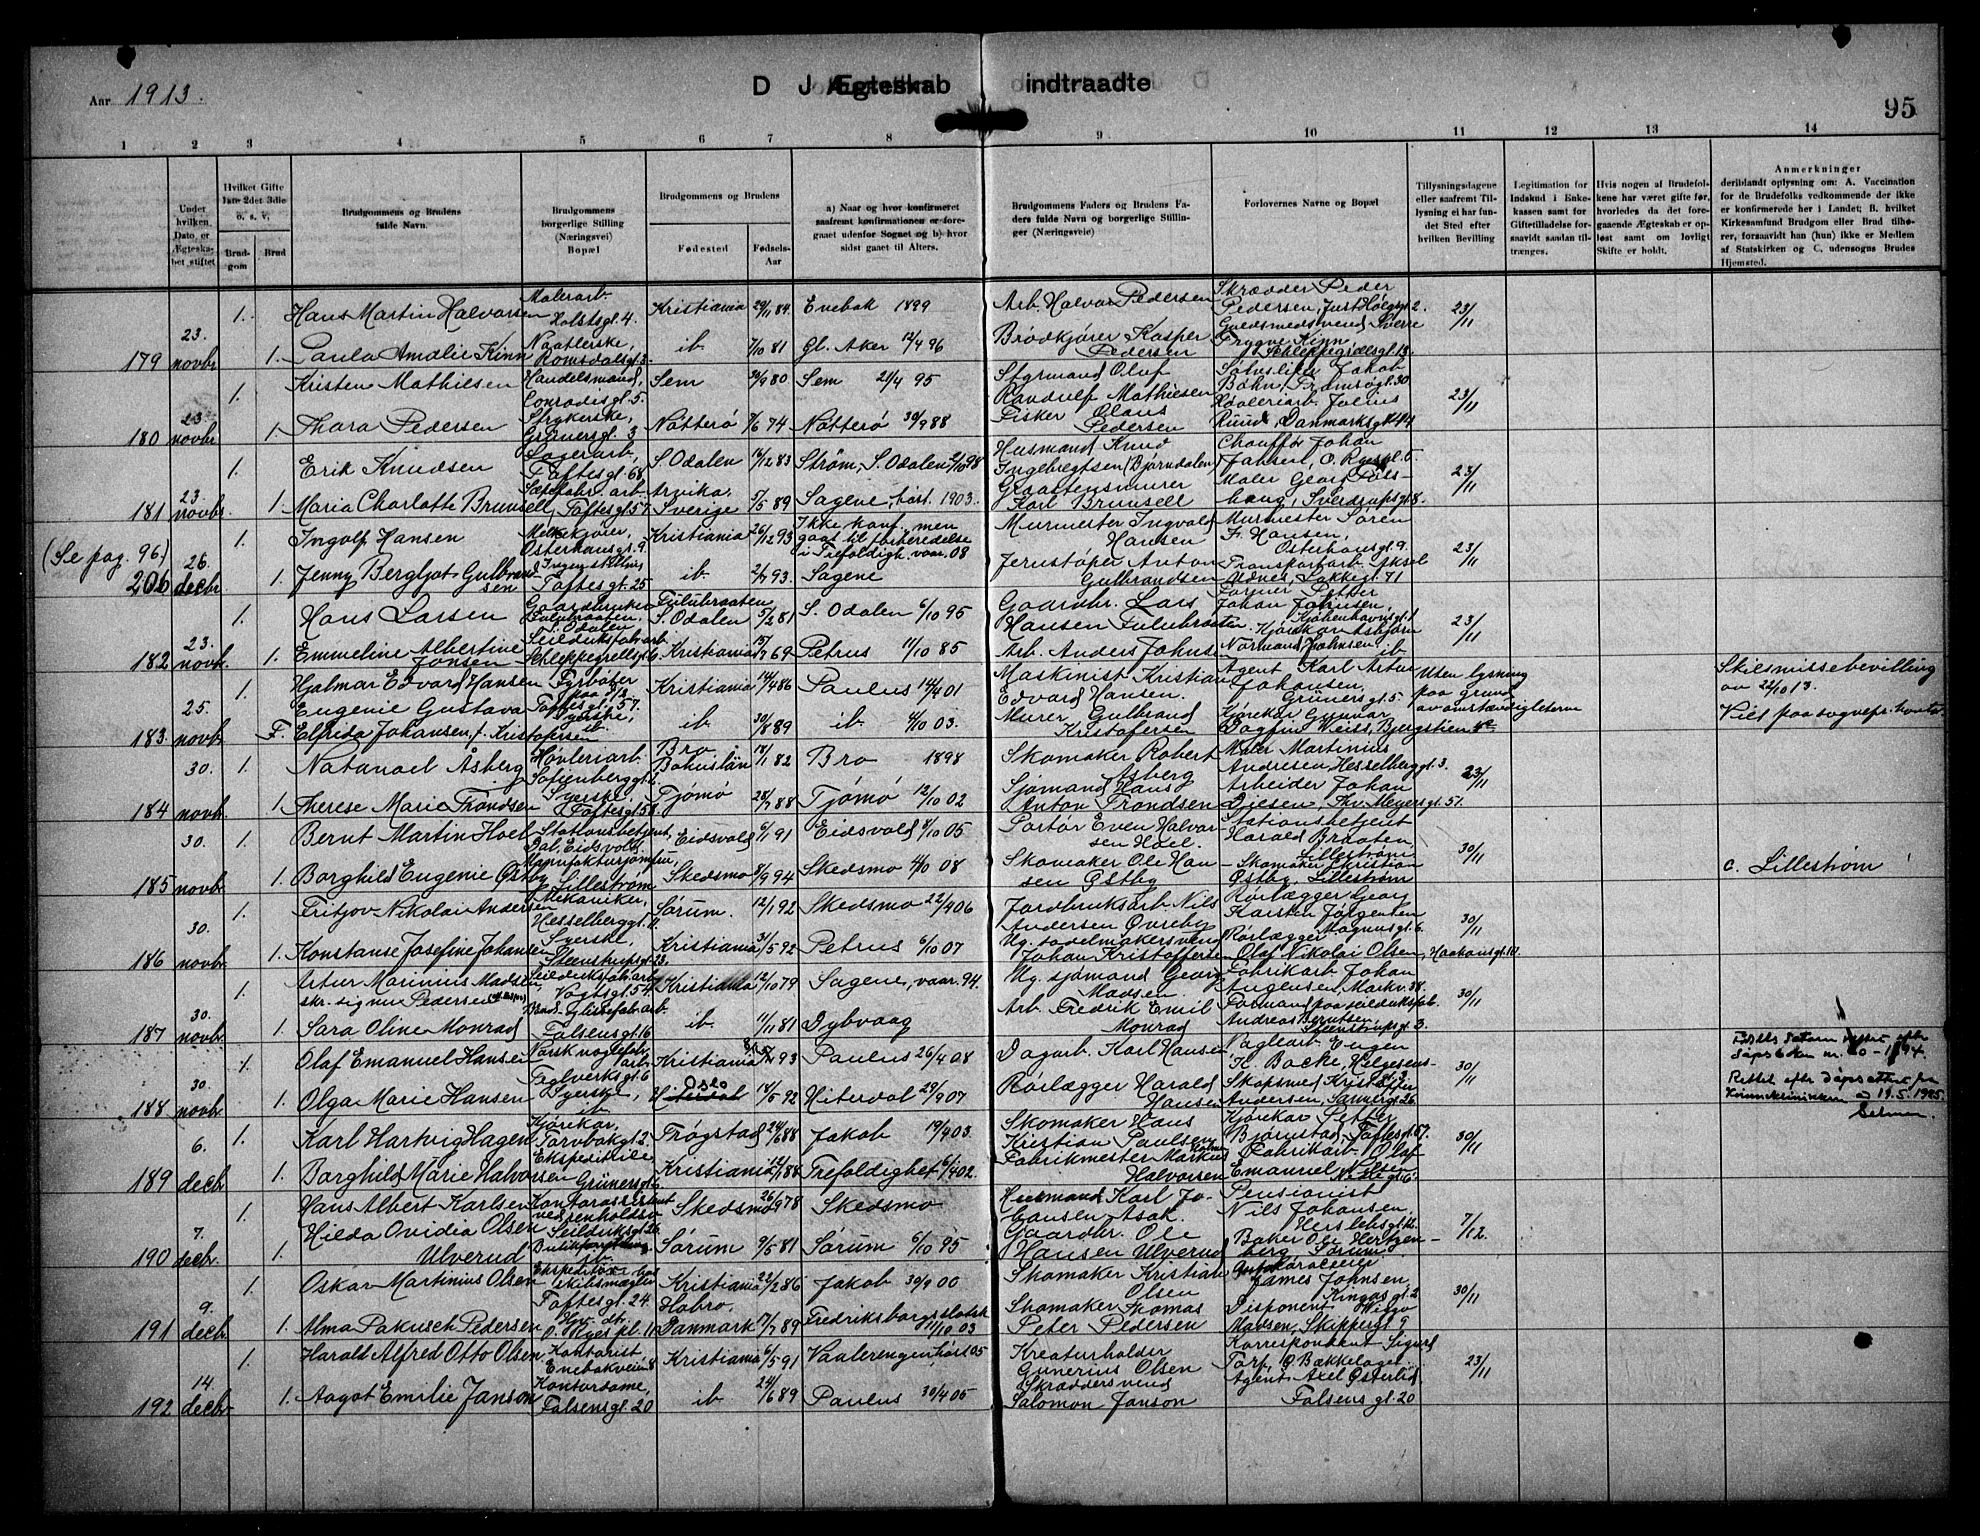 Aar 1913.
D J Ægteskab indtraadte
95
1 2 3 4 5 6 7 8 9 10 11 12 13 14
Under hvilken Dato er Ægteskabet stiftet
Hvilket Gifte 1ste 2det 3die o. s. v,
Brudgom
Brud
Brudgommens og Brudens fulde Navn.
Brudgommens borgerlige Stilling (Næringsvei) Bopæl
Brudgommens og Brudens
Fødested
Fødsels-Aar
a) Naar og hvor konfirmeret saafremt konfirmationen er foregaaet udenfor Sognet og b) hvor sidst gaaet til Alters.
Brudgommens Faders og Brudens Faders fulde Navn og borgerlige Stillinger (Næringsveie)
Forlovernes Navne og Bopæl
Tillysningsdagene eller saafremt Tillysning ei har fundet Sted efter hvilken Bevilling
Legitimation for Indskud i Enkekassen samt for Giftetilladelse forsaavidt saadan tiltrænges.
Hvis nogen af Brudefolkene har været gifte før, hvorledes da det foregaaende Ægteskab er opløst samt om lovligt Skifte er holdt.
Anmerkninger
deriblandt oplysning om: A. Vaccination for de Brudefolks vedkommende der ikke er konfirmerede her i Landet; B. hvilket Kirkesamfund Brudgom eller Brud tilhører, forsaavidt han (hun) ikke er Medlem af Statskirken og C. udensogns Brudes Hjemsted.
179 23. novbr.
1. Hans Martin Halvorsen Malerarb. Holstsgt. 4. Kristiania 29/11 84 Enebak 1899 Arb. Halvor Pedersen Skrædder Peder Pedersen, Just Høegsgt. 2. 23/11
1. Paula Amalie Kinn Naatlerske, Romsdalsgt. 3. ib 7/10 81 Gl. Aker 12/4 96 Brødkjører Kasper Pedersen Guldsmedsvend Sverre Trygve Kinn Schleppegrellsgt. 13.
180 23. novbr
1. Kristen Mathiesen Handelsmand, Conradisgt. 5 Sem 29/9 80 Sem 21/4 95 Styrmand Oluf Randulf Mathiesen Sølvsliper Jakob Bohn, Tromsøgt. 30 23/11
1. Thora Pedersen Strykerske, Grünersgt. 3 Nøtterø 7/6 74 Nøtterø 30/9 88 Fisker Claus Pedersen Høvleriarb. Julius Ruud, Danmarksgt. 44
181 23. novbr.
1. Erik Knudsen Lagerarb, Toftesgt. 68 S. Odalen 14/12 83 Strøm, S. Odalen 2/10 98 Husmand Knud Ingebregtsen (Bjørndalen) Chauffør Johan Jansen, O. Ryespl. 5. 23/11
1. Maria Charlotte Brunsell Sæpefabr. arb. Toftesgt. 57 Arvika, Sverige 5/5 89 Sagene, høst. 1903. Graastensmurer Karl Brunsell Maler Georg Fosshaug, Sverdrupsgt. 8.
(Se pag. 96.) 206 26. decbr
1. Ingolf Hansen Melkekjører, Osterhausgt. 9. Kristiania 26/12 93 Ikke konf., men gaat til forberedelse i Trefoldigh. vaar. 08 Murmester Ingvald Hansen Murmester Søren F. Hansen, Osterhausgt. 9. 23/11
1. Jenny Bergljot Gulbrandsen Ingen stilling Toftesgt. 25 ib 2/7 93. Sagene Jernstøper Anton Gulbrandsen Transportarb. Aksel Udnes, Lakkegt. 71
182 23. novbr.
1. Hans Larsen Gaardbruker Fulubraaten, S. Odalen Fulubraaten S. Odalen 5/2 81 S. Odalen 6/10 95 Gaardbr. Lars Hansen Fulubraaten Former Petter Johan Johnsen, Kjøbenhavnsgt. 1 23/11
1. Emmeline Albertine Jonsen Seildukfab. arb Schleppegrellsgt. 6. Kristiania 15/7 69 Petrus 11/10 85 Arb. Anders Johnsen Kjørekar Asbjørn Normand Johnsen, ib
183. 25. novbr.
1 Hjalmar Edvard Hansen Fyrbøter paa D/S Toftesgt. 57. Kristiania 14/4 86 Paulus 14/4 01 Maskinist Kristian Edvard Hansen. Agent Karl Artur Johansen, Grünersgt. 5 Uten lysning paa grund av omstændigheterne Skilsmissebevilling av 22/10 13.
F. Eugenie Gustava Elfrida Johansen, f. Kristofersen Syerske, ib. ib 30/8 89 ib 4/10 03. Murer Gulbrand Kristofersen Kjørekar Gunnar Dagfin Weiss, Bjergstien 4c Viet paa sognepr. kontor
184 30. novbr.
1. Natanael Åsberg Høvleriarb. Sofienberggt. Bro, Bohuslän 14/1 82 Bro 1898 Skomaker Robert Åsberg Maler Martinius Andresen, Hesselberggt. 3. 23/11
1 Therese Marie Trondsen Syerske, Toftesgt. 58 Tjømø 28/7 88 Tjømø 12/10 02 Sjømand Hans Anton Trondsen Arbeider Johan Diesen, Thv. Meyersgt. 57.
185 30. novbr
1. Bernt Martin Hoel Stationsbetjent, Dal, Eidsvold Eidsvold 6/1 91 Eidsvold 8/10 05 Portør Even Halvorsen Hoel. Stationsbetjent Harald Braaten Lillestrøm 30/11
1. Borghild Eugenie Østby Manufakturjomfru, Lillestrøm Skedsmo 8/9 94 Skedsmo 4/10 08 Skomaker Ole Hansen Østby Skomaker Christian Østby, Lillestrøm c. Lillestrøm
186 30. novbr.
1. Fritjov Nikolai Andersen Mekaniker, Hesselberggt. 11. Sørum. 12/1 92 Skedsmo 22/4 06 Jordbruksarb. Nils Andersen Øvreby Rørlægger Georg Karsten Jørgensen Magnusgt. 6. 30/11
1. Konstanse Josefine Johansen Syerske, Steenstrupsgt. 13. Kristiania 31/5 92 Petrus 6/10 07 Ug. sadelmakersvend Johan Kristoffersen Rørlægger Olaf Nikolai Olsen, Haakonsgt. 10.
187 30. novbr.
1. Artur Marinius Madsen, skr. sig nu Pedersen Seildukfab. arb. Vogtsgt. 54 Kristiania 12/10 79 Sagene, vaar 94. Ug. sjømand Georg Madsen. Fabrikarb. Johan Augensen, Markv. 38. 30/11
1. Sara Oline Monrad Falsensgt. 16 ib 11/11 81 Dybvaag Arb. Fredrik Emil Monrad Formand paa seilduksfab. Andreas Berntsen, Steenstrupsgt. 3.
188 30. novbr.
1. Olaf Emanuel Hansen Norsk naglefabr. arb. Teglverksgt. 6 Kristiania 93 Paulus 26/4 08 Dagarb. Karl Hansen Paglearb. Eugen H. Backe, Helgesensgt. 30/11 Fødselsdatum rettet efter dåpsboken nr. 20 - 1894
1. Olga Marie Hansen Syerske, ib Hiterdal Oslo 14/5 92 Hiterdal 29/9 07 Rørlægger Harald Hansen Skopsmed Kristoffer Andersen, Sannergt. 26 Rettet efter dåpsattest fra Kvinneklinikken 19.5.1925.
189 6. decbr.
1. Karl Hartvig Hagen Kjørekar, Torvbakgt. 2. Trøgstad 24/6 88 Jakob 19/4 03. Skomaker Hans Kristian Paulsen Kjørekar Petter Bjørnstad, Toftesgt. 57. 30/11
1. Borghild Marie Halvorsen Ekspeditrice Grünersgt. 6 Kristiania 12/1 88 Trefoldighet 6/4 02. Fabrikmester Markus Halvorsen Fabrikarb. Olaf Emanuel Nilsen
190 7. decbr.
1. Hans Albert Karlsen Kontorassistent Skedsmo 26/9 78 Skedsmo Husmand Karl Johansen Asak. Pensionist Nils Johansen, Herslebsgt. 7/12.
1. Hilda Ovidia Olsen Ulverud Sørum 9/5 81 Sørum 6/10 95 Gaardbr. Ole Hansen Ulverud Baker Ole Hertzenberg, Sørum
191 9. decbr
1. Oskar Martinius Olsen Ekspeditør hos skibsmægler Toftesgt. 24. Kristiania 22/2 86 Jakob 30/9 00 Skomaker Kristian Olsen James Johnsen, Kingosgt. 2 30/11
1. Alma Pakusch Pedersen Hv. dt. O. Ryes pl. 11 Hobro, Danmark 17/7 89 Fredriksborg slotsk 11/10 03 Skomaker Thomas Peter Pedersen Disponent Viggo Madsen, Skippergt. 9
192 14. decbr.
1. Harald Alfred Otto Olsen Kontorist Enebakveien 8 Kristiania 6/5 91 Vaalerengen høst 05 Kreaturholder Gunerius Olsen Korrespondent Sigurd Torp, O. Bækkelaget 23/11
1. Aagot Emilie Janson Kontordame, Falsensgt. 20 ib 24/6 89 Paulus 30/4 05 Skræddersvend Salomon Janson Agent Axel Østerlid Falsens gt. 20